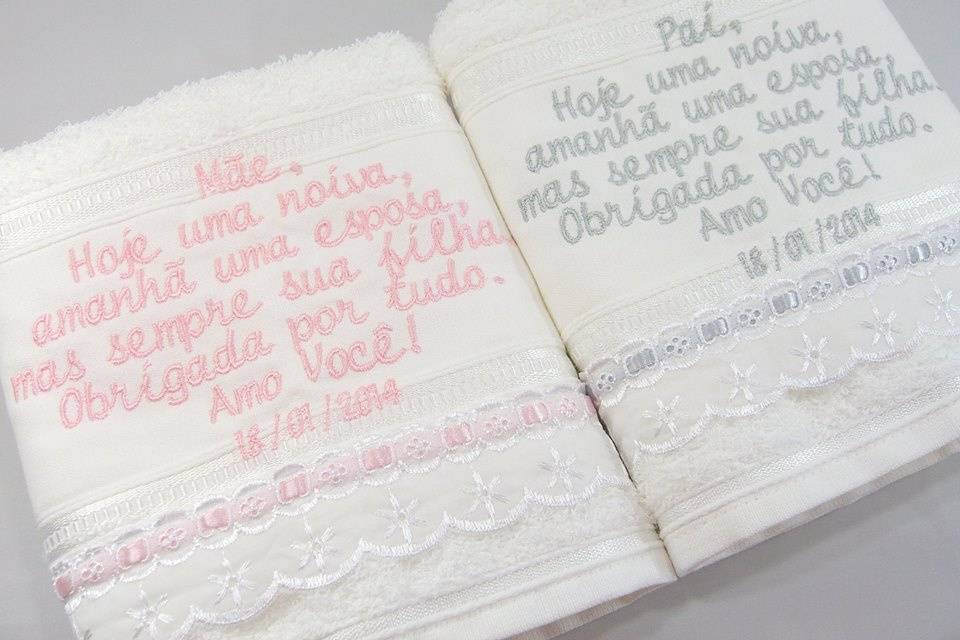 Mãe,
Hoje uma noiva,
amanhã uma esposa,
mas sempre sua filha.
Obrigada por tudo.
Amo Você!
18/01/2014
Pai,
Hoje uma noiva,
amanhã uma esposa,
mas sempre sua filha.
Obrigada por tudo.
Amo Você!
18/01/2014